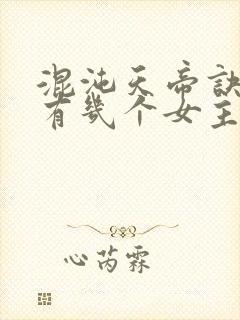 混沌天帝訣
有幾个女主
心芮霖